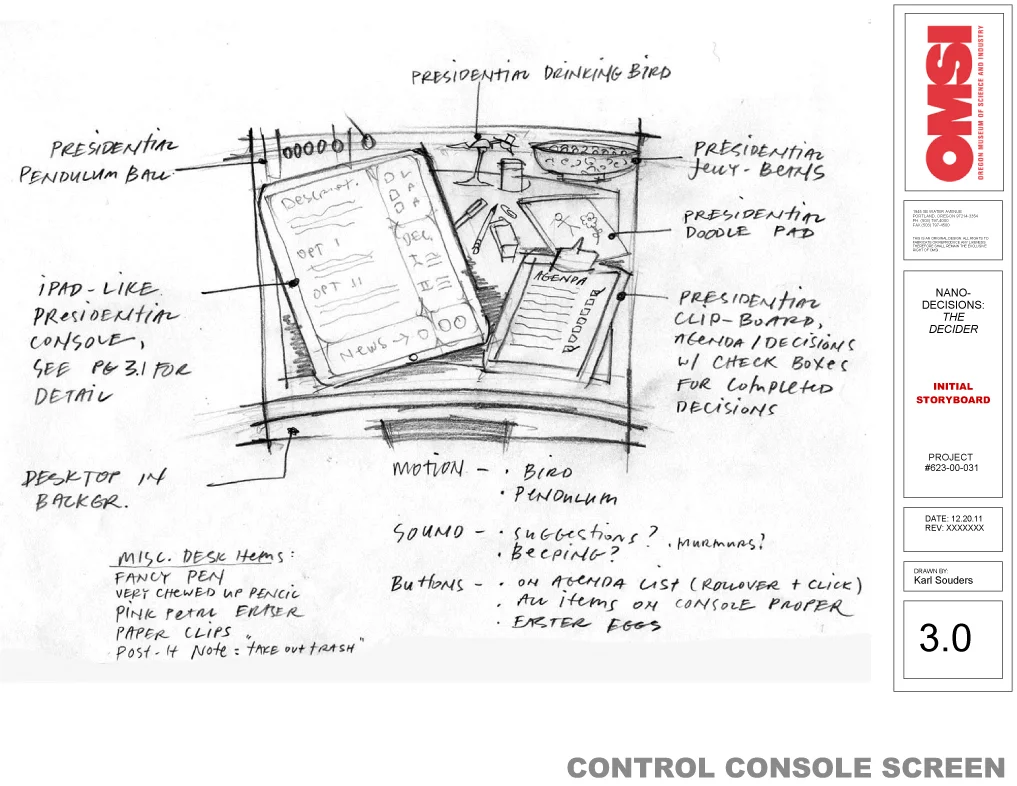 PRESIDENTIAL DRINKING BIRD
PRESIDENTIAL
PENDULUM BALL
PRESIDENTIAL
JELLY-BEANS
PRESIDENTIAL
DOODLE PAD
iPAD-LIKE
PRESIDENTIAL
CONSOLE,
SEE PG 3.1 FOR
DETAIL
PRESIDENTIAL
CLIP-BOARD,
AGENDA/DECISIONS
W/ CHECK BOXES
FOR COMPLETED
DECISIONS
DESKTOP IN
BACKGR.
OPT I
OPT II
DEC.
NEWS →
AGENDA
MOTION - • BIRD
• PENDULUM
SOUND - • SUGGESTIONS?
• BEEPING? • MURMURS?
BUTTONS - • ON AGENDA LIST (ROLLOVER + CLICK)
• ALL ITEMS ON CONSOLE PROPER
• EASTER EGGS
MISC. DESK ITEMS:
FANCY PEN
VERY CHEWED UP PENCIL
PINK PETAL ERASER
PAPER CLIPS
POST-IT NOTE = "TAKE OUT TRASH"
OMSI
OREGON MUSEUM OF SCIENCE AND INDUSTRY
NANO-
DECISIONS:
THE
DECIDER
INITIAL
STORYBOARD
PROJECT
#623-00-031
DATE: 12.20.11
REV: XXXXXXX
DRAWN BY:
Karl Souders
3.0
CONTROL CONSOLE SCREEN